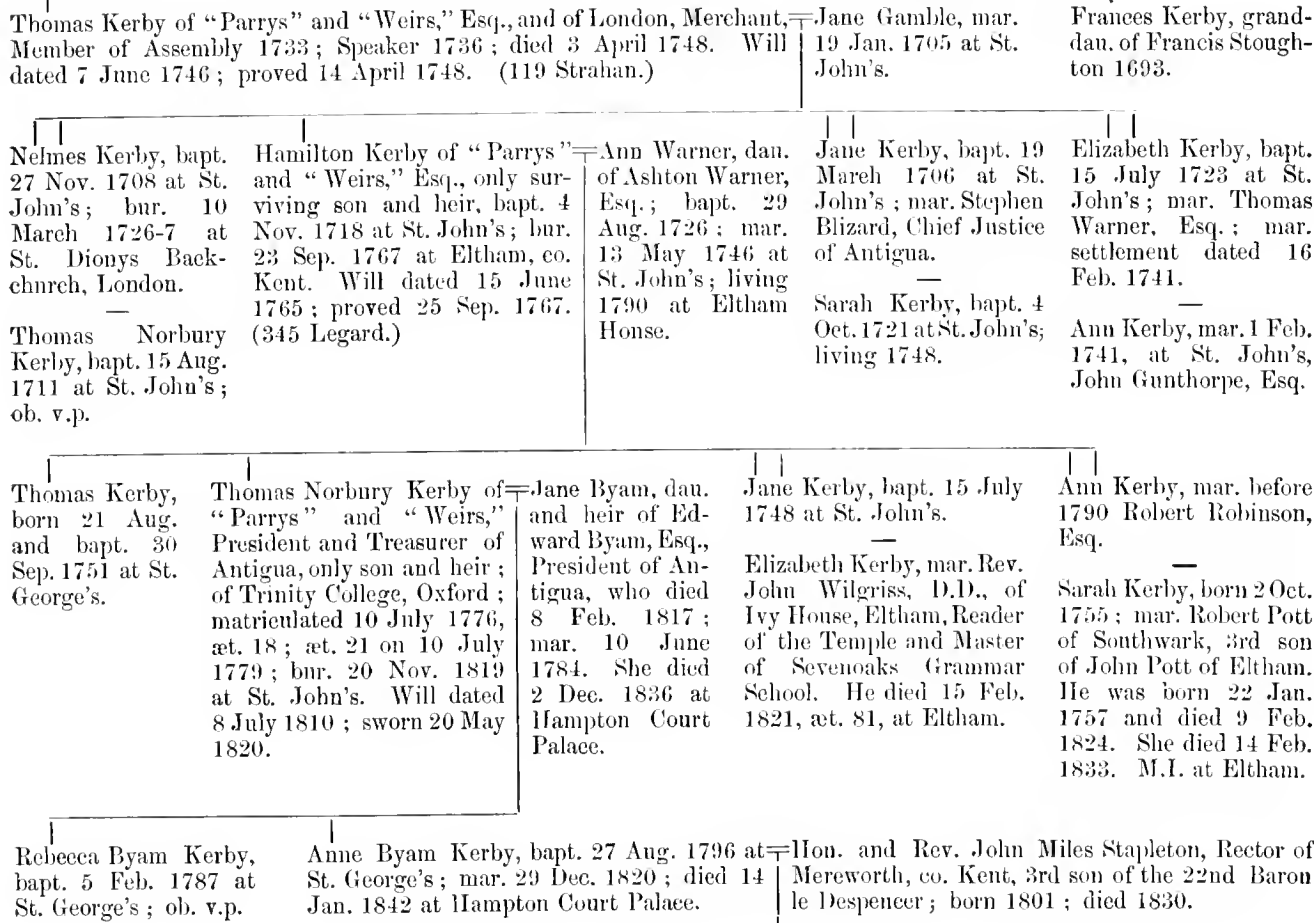 Thomas Kerby of “Parrys” and “Weirs,” Esq., and of London, Merchant,
Member of Assembly 1733; Speaker 1736; died 3 April 1748. Will
dated 7 June 1746; proved 14 April 1748. (119 Strahan.)
Jane Gamble, mar.
19 Jan. 1705 at St.
John's.
Frances Kerby, grand-
dau. of Francis Stough-
ton 1693.
Nelmes Kerby, bapt.
27 Nov. 1708 at St.
John's; bur. 10
March 1726-7 at
St. Dionys Back-
church, London.
—
Thomas Norbury
Kerby, bapt. 15 Aug.
1711 at St. John's;
ob. v.p.
Hamilton Kerby of “Parrys”
and “Weirs,” Esq., only sur-
viving son and heir, bapt. 4
Nov. 1718 at St. John's; bur.
23 Sep. 1767 at Eltham, co.
Kent. Will dated 15 June
1765; proved 25 Sep. 1767.
(345 Legard.)
Ann Warner, dau.
of Ashton Warner,
Esq.; bapt. 29
Aug. 1726; mar.
13 May 1746 at
St. John's; living
1790 at Eltham
House.
Jane Kerby, bapt. 19
March 1706 at St.
John's; mar. Stephen
Blizard, Chief Justice
of Antigua.
—
Sarah Kerby, bapt. 4
Oct. 1721 at St. John's;
living 1748.
Elizabeth Kerby, bapt.
15 July 1723 at St.
John's; mar. Thomas
Warner, Esq.; mar.
settlement dated 16
Feb. 1741.
—
Ann Kerby, mar. 1 Feb.
1741, at St. John's,
John Gunthorpe, Esq.
Thomas Kerby,
born 21 Aug.
and bapt. 30
Sep. 1751 at St.
George's.
Thomas Norbury Kerby of
“Parrys” and “Weirs,”
President and Treasurer of
Antigua, only son and heir;
of Trinity College, Oxford;
matriculated 10 July 1776,
æt. 18; æt. 21 on 10 July
1779; bur. 20 Nov. 1819
at St. John's. Will dated
8 July 1810; sworn 20 May
1820.
Jane Byam, dau.
and heir of Ed-
ward Byam, Esq.,
President of An-
tigua, who died
8 Feb. 1817;
mar. 10 June
1784. She died
2 Dec. 1836 at
Hampton Court
Palace.
Jane Kerby, bapt. 15 July
1748 at St. John's.
—
Elizabeth Kerby, mar. Rev.
John Wilgriss, D.D., of
Ivy House, Eltham, Reader
of the Temple and Master
of Sevenoaks Grammar
School. He died 15 Feb.
1821, æt. 81, at Eltham.
Ann Kerby, mar. before
1790 Robert Robinson,
Esq.
—
Sarah Kerby, born 2 Oct.
1755; mar. Robert Pott
of Southwark, 3rd son
of John Pott of Eltham.
He was born 22 Jan.
1757 and died 9 Feb.
1824. She died 14 Feb.
1833. M.I. at Eltham.
Rebecca Byam Kerby,
bapt. 5 Feb. 1787 at
St. George's; ob. v.p.
Anne Byam Kerby, bapt. 27 Aug. 1796 at
St. George's; mar. 29 Dec. 1820; died 14
Jan. 1842 at Hampton Court Palace.
Hon. and Rev. John Miles Stapleton, Rector of
Mereworth, co. Kent, 3rd son of the 22nd Baron
le Despencer; born 1801; died 1830.